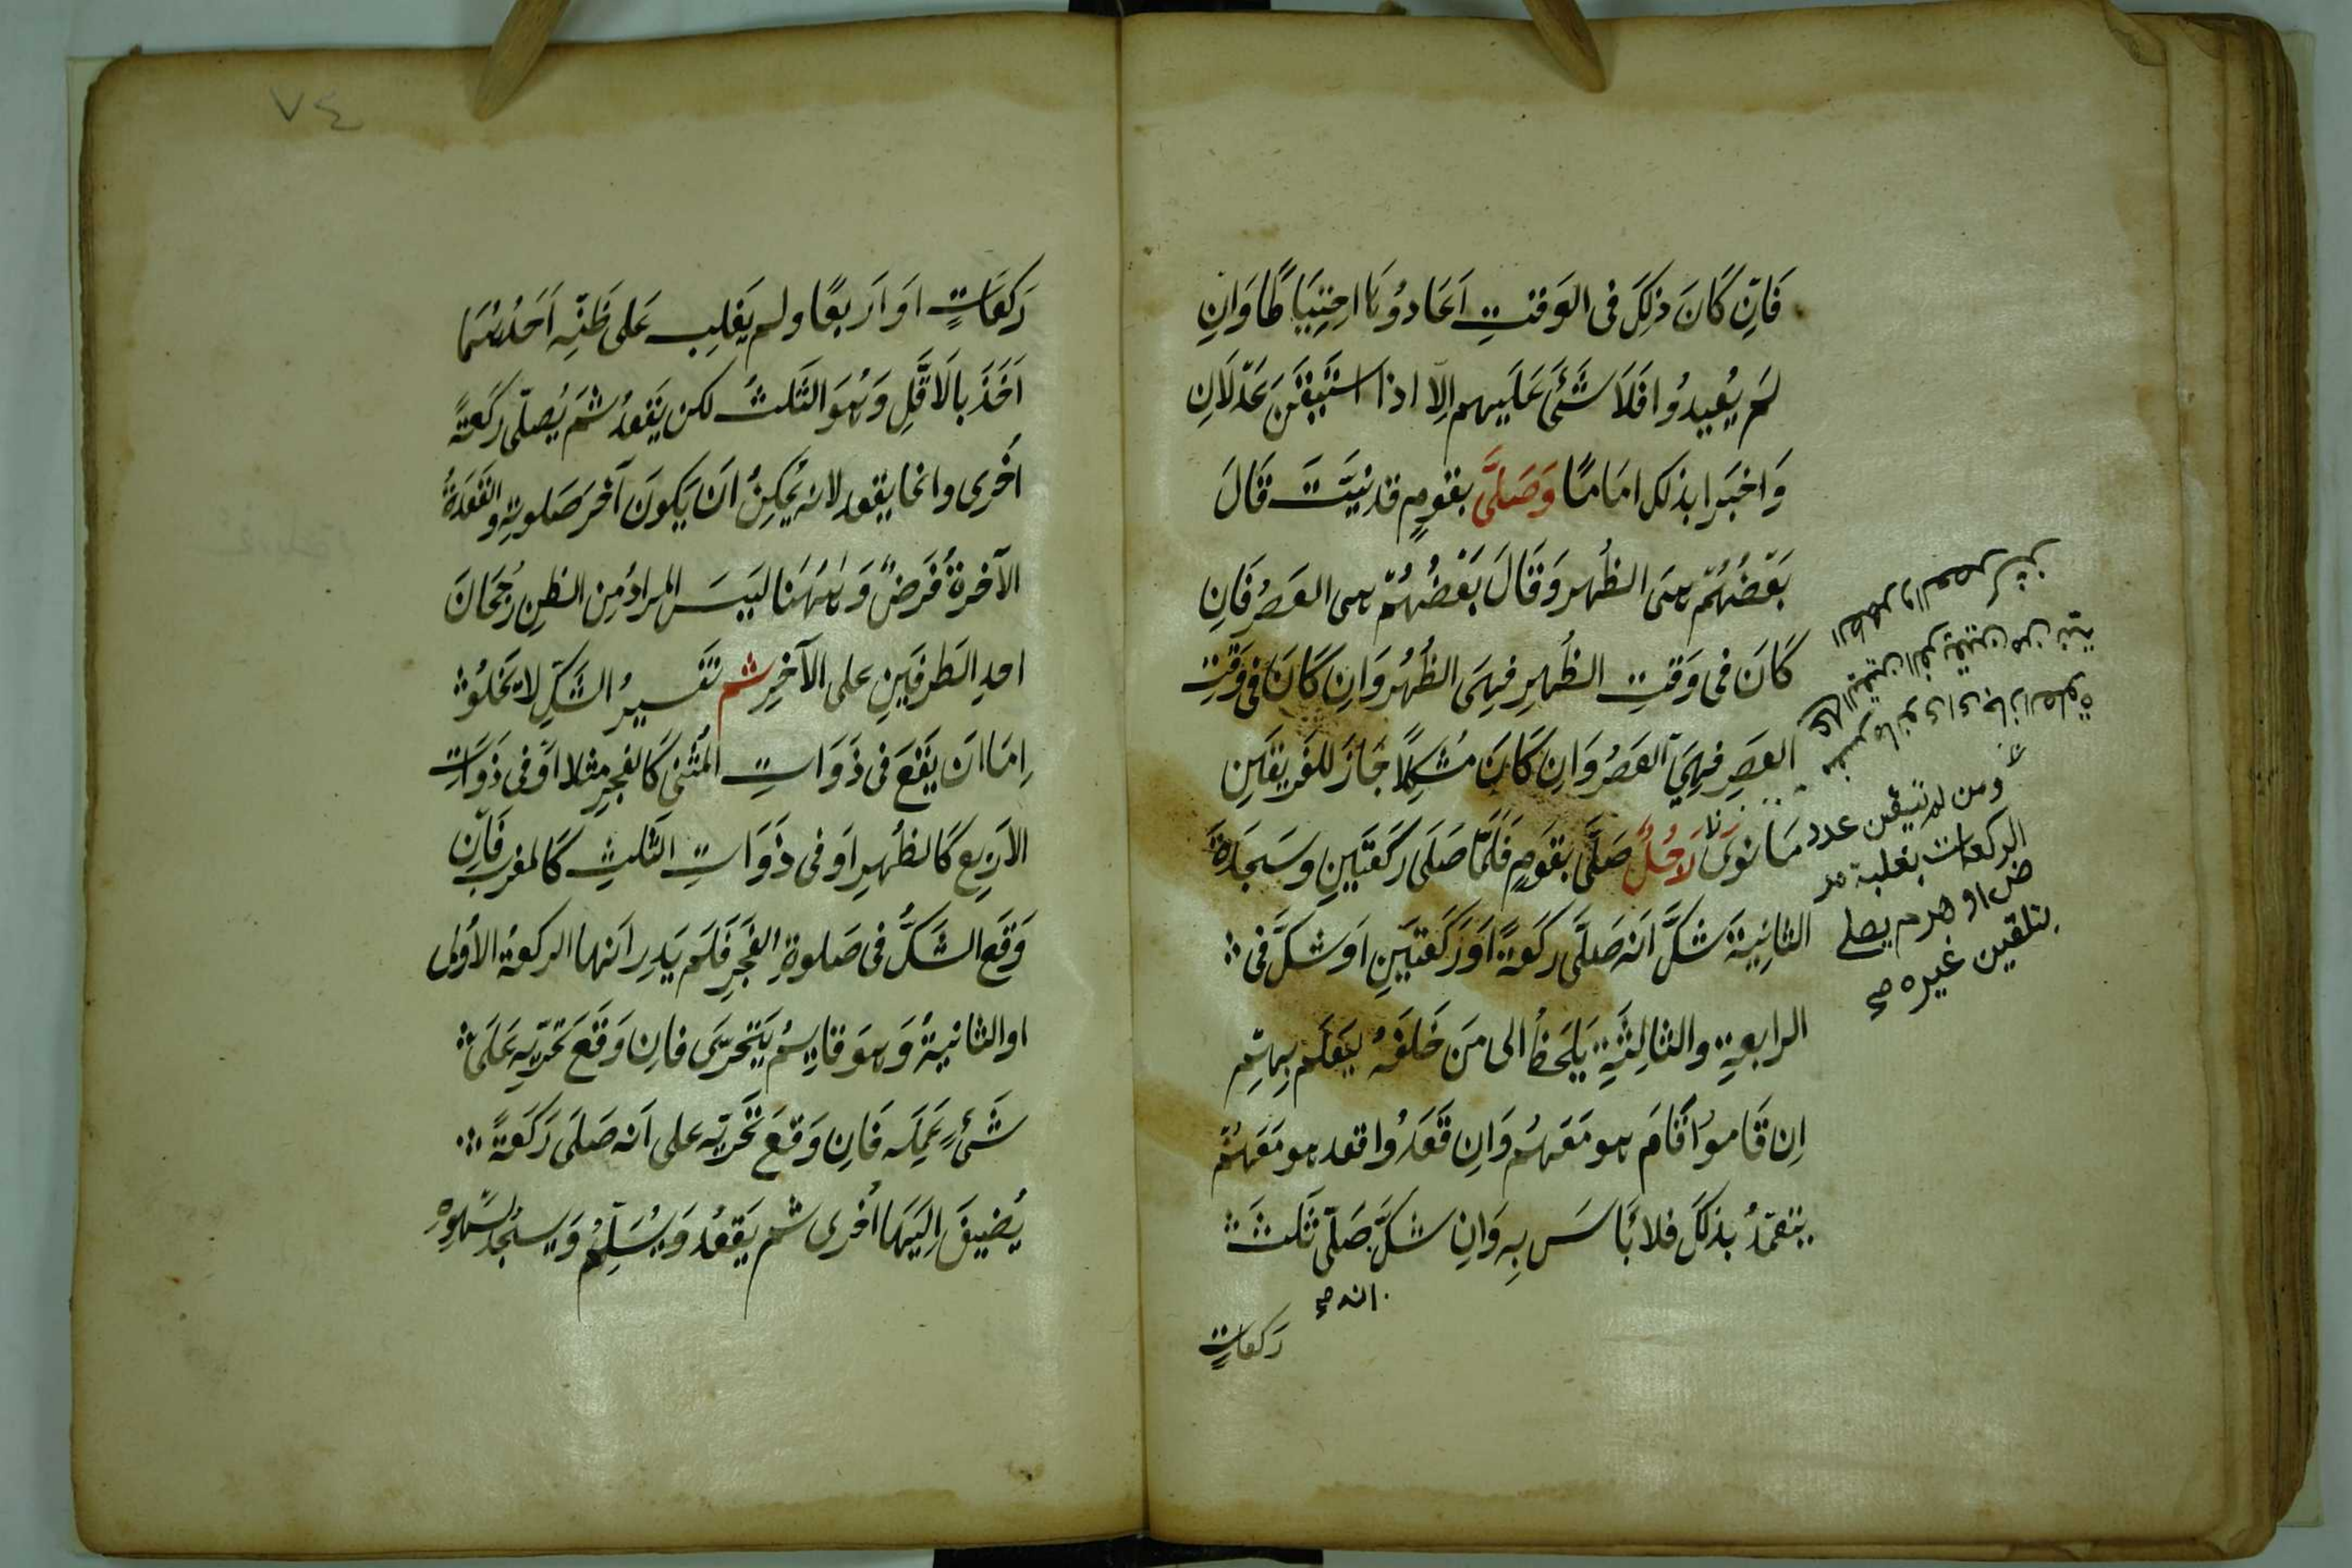 فَاِنْ كَانَ ذٰلِكَ فى الوَقتِ اَعَادوُهَا احتِيَاطًا وَاِن
لَم يُعيدُوا فَلَا شَئَ عَلَيهم اِلّا اذا استَيقَنَ عَدلَانِ
وَاخبَرا بذلك امَامًا وَصَلَّى بقومٍ قد نِيَّتَ قَالَ
بَعْضُهُمْ هى الظُهر وَقَالَ بَعْضُهُمْ هى العَصرُ فَاِن
كَانَ فى وَقتِ الظُهرِ فهِىَ الظُهُر وَاِن كَانَ فى وَقتِ
العَصرِ فهِيَ العَصرُ وَاِن كَانَ مُشكِلًا جَازَ للفَرِيقَينِ
مَا نوىٰ رَجُلٌ صَلَّى بقَومٍ فَلَمَّا صَلَى رَكعَتَينِ وسَجَدَةَ
الثانِيَةَ شَكَّ اَنه صَلَّى ركعَةً اَو رَكَعتَينِ اَو شكَّ فى
الرابعةِ والثالِثَةِ يَلحَظُ الى مَن خَلفَهُ ليَعلَم بِهِم
اِن قَاموُا قَامَ هو مَعَهُم وَاِن قَعَدُوا قعد هو مَعَهُمْ
يتعمّدُ بذلكَ فلا بَاسَ بِه وَاِن شكَّ صَلّى ثَلثَ
انه صح
ركعاتٍ
الظهر والعصر
ومن لم يتيقن عدد
الركعات بغلبة
او هرم يصلى
بتلقين غيره صح
٧٤
رَكعَاتٍ اَو اَربعًا ولم يَغلِب عَلى ظَنِّه اَحَدُهُمَا
اَخَذَ بالَاقَلِّ وَهُوَ الثَلثُ لكن يَقعدُ ثمَ يُصلّى رَكعةً
اُخرى وانما يقعد لانه يُمكِنُ اَن يَكونَ آخرَ صَلوتِهِ والقَعدَةُ
الآخرةُ فَرَضٌ وَهٰهُنَا لَيسَ المرادُ مِن الظنِ رُجحَانَ
احدِ الطَرفَينِ على الآخرِ ثم تَفسيرُ الشَكِّ لا يَخلوُ
اِمَا اَن يَقَعَ فى ذَوَاتِ المَثْنى كَالفجرِ مثلا اَو فى ذَوَاتِ
الاَربع كَالظُهرِ اَو فى ذَوَاتِ الثَلثِ كَالمغربِ فَاِن
وَقَعَ الشَكُّ فى صَلوةِ الفَجرِ فَلَم يَدرِ اَنها الركعةُ الاُولى
او الثانيةُ وَهو قايمُ يَتَحرّىَ فاِن وَقَعَ تَحرّيهِ عَلَى
شَئٍ عَمِلَه فَاِن وَقعَ تَحَرّيه على اَنه صَلَى رَكعَةً
يُضيفَ اِلَيهَا اُخرى ثم يَقعُد وَيُسَلِّمُ وَيسجُد لسَهوِه